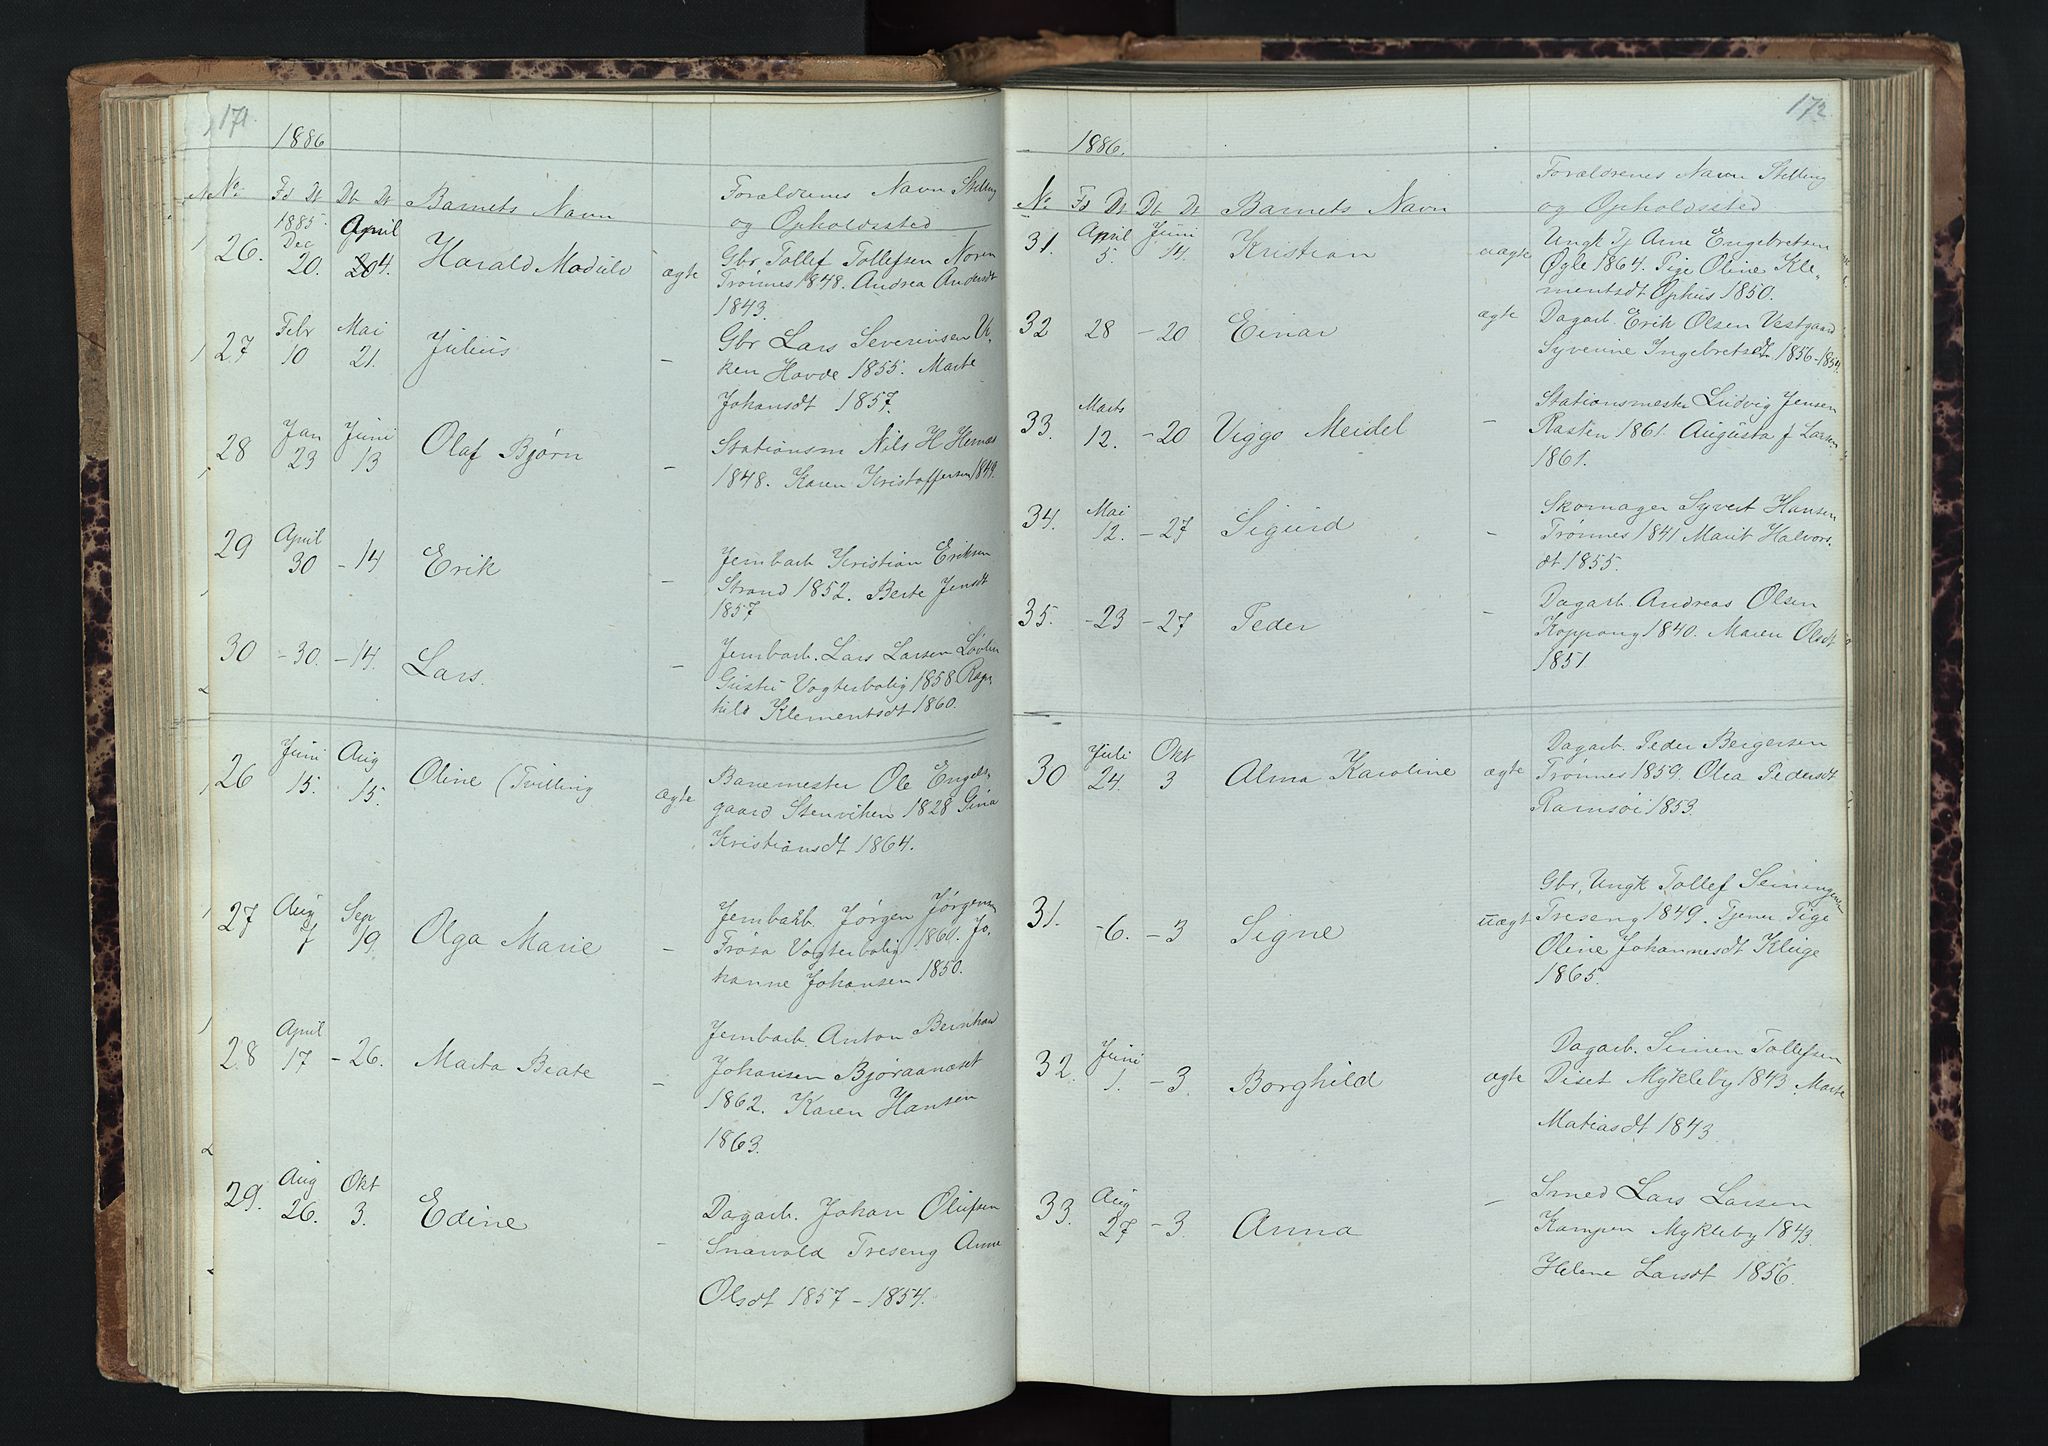 171.
1886
No. Fd Dt Db Dt Barnets Navn Forældrenes Navn Stilling
og Opholdssted
26. 1885. Dec 20. April 4. Harald Modulv ægte Gbr Tollef Tollefsen Noren
Trønnes 1848. Andrea Andersdt
1843.
27 Febr 10 Mai 21. Julius - Gbr Lars Severinsen Vi-
ken Hovde 1855. Marte
Johansdt 1857.
28 Jan 23 Juni 13 Olaf Bjørn - Stationsm Nils H Hernæs
1848. Karen Kristoffersen 1849.
29 April 30 - 14 Erik - Jernbarb Kristian Eriksen
Strand 1852. Berte Jensdt
1857
30 - 30. - 14. Lars. - Jernbarb. Lars Larsen Løvlien
Vogterbolig 1858 Ragn-
hild Klementsdt 1860.
26 Juni 15. Aug 15. Oline (Tvilling ægte Banemester Ole Engels-
gaard Stenviken 1828 Gina
Kristiansdt 1864.
27 Aug 7 Sep 19. Olga Marie - Jernbarb. Jørgen Jørgensen
Frøsa Vogterbolig 1860. Jo-
hanne Johansen 1850.
28 April 17 - 26. Marta Beate - Jernbarb. Anton Bernhard
Johansen Bjøraanæset
1862. Karen Hansen
1863.
29. Aug 26. Okt 3. Edine - Dagarb. Johan Olufsen
Snævold Treseng Anne
Olsdt 1857 - 1854.
172
1886.
No Fd Dt Db Dt Barnets Navn Forældrenes Navn Stilling
og Opholdssted
31. April 5. Juni 14. Kristian uægte Ungk Tj Arne Engebretsen
Øgle 1864. Pige Oline Kle-
mentsdt Ophus 1850.
32 28 - 20 Einar ægte Dagarb. Erik Olsen Vestgaard
Syverine Ingebretsdt 1856 - 1854.
33. Marts 12. - 20 Viggo Meidel - Stationsmester Ludvig Jensen
Rasten 1861. Augusta f Larsen
1861.
34. Mai 12. - 27 Sigurd - Skomager Syvert Hansen
Trønnes 1841 Marit Halvors-
dt 1855.
35. - 23 - 27 Peder - Dagarb. Andreas Olsen
Koppang 1840. Maren Olsdt
1851.
30 Juli 24. Okt 3 Alma Karoline ægte Dagarb. Peder Bergersen
Trønnes 1859. Olea Pedersdt
Ramsøi 1853.
31. - 6. - 3 Signe uægt Gbr, Ungk Tollef
Treseng 1849. Tjener Pige
Oline Johannesdt Kluge
1865.
32. Juni 1. - 3. Borghild ægte Dagarb. Simen Tollefsen
Diset Mykleby 1843 Marte
Matiasdt 1843.
33. Aug 27 - 3. Anna - Smed Lars Larsen
Kampen Mykleby 1843.
Helene Larsdt 1856.